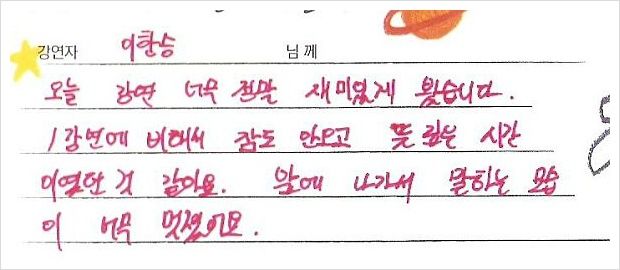 강연자 이환승 님께
오늘 강연 너무 정말 재미있게 봤습니다.
1강연에 비해서 잠도 안오고 뜻 깊은 시간
이였던 것 같아요. 앞에 나가서 말하는 모습
이 너무 멋졌어요.